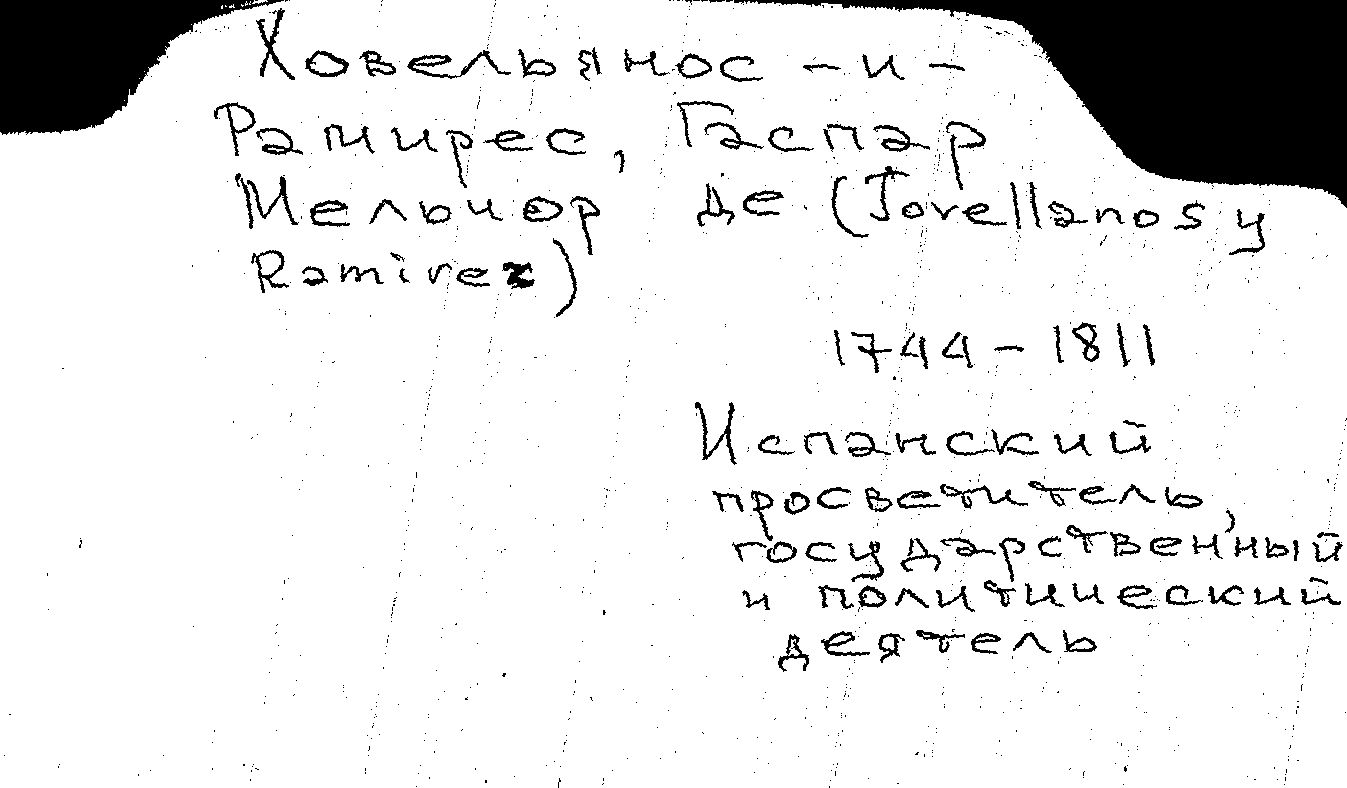 Ховельянос - и -
Рамирес, Гаспар
Мельчор де (Jovellanos y
Ramirez)
1744 - 1811
Испанский
просветитель,
государственный
и политический
деятель